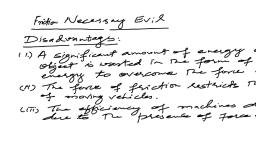 Friction Necessary Evil
Disadvantages:
(i) A significant amount of energy
object is wasted in the form of
energy to overcome the force
(ii) The force of friction restricts
of moving vehicles.
(iii) The efficiency of machines
due to the presence of force